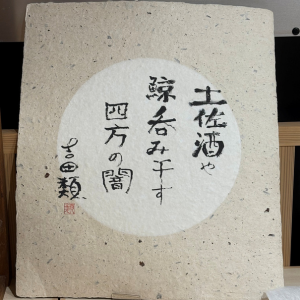 土佐酒や
鯨呑み干す
四方の闇
吉田類